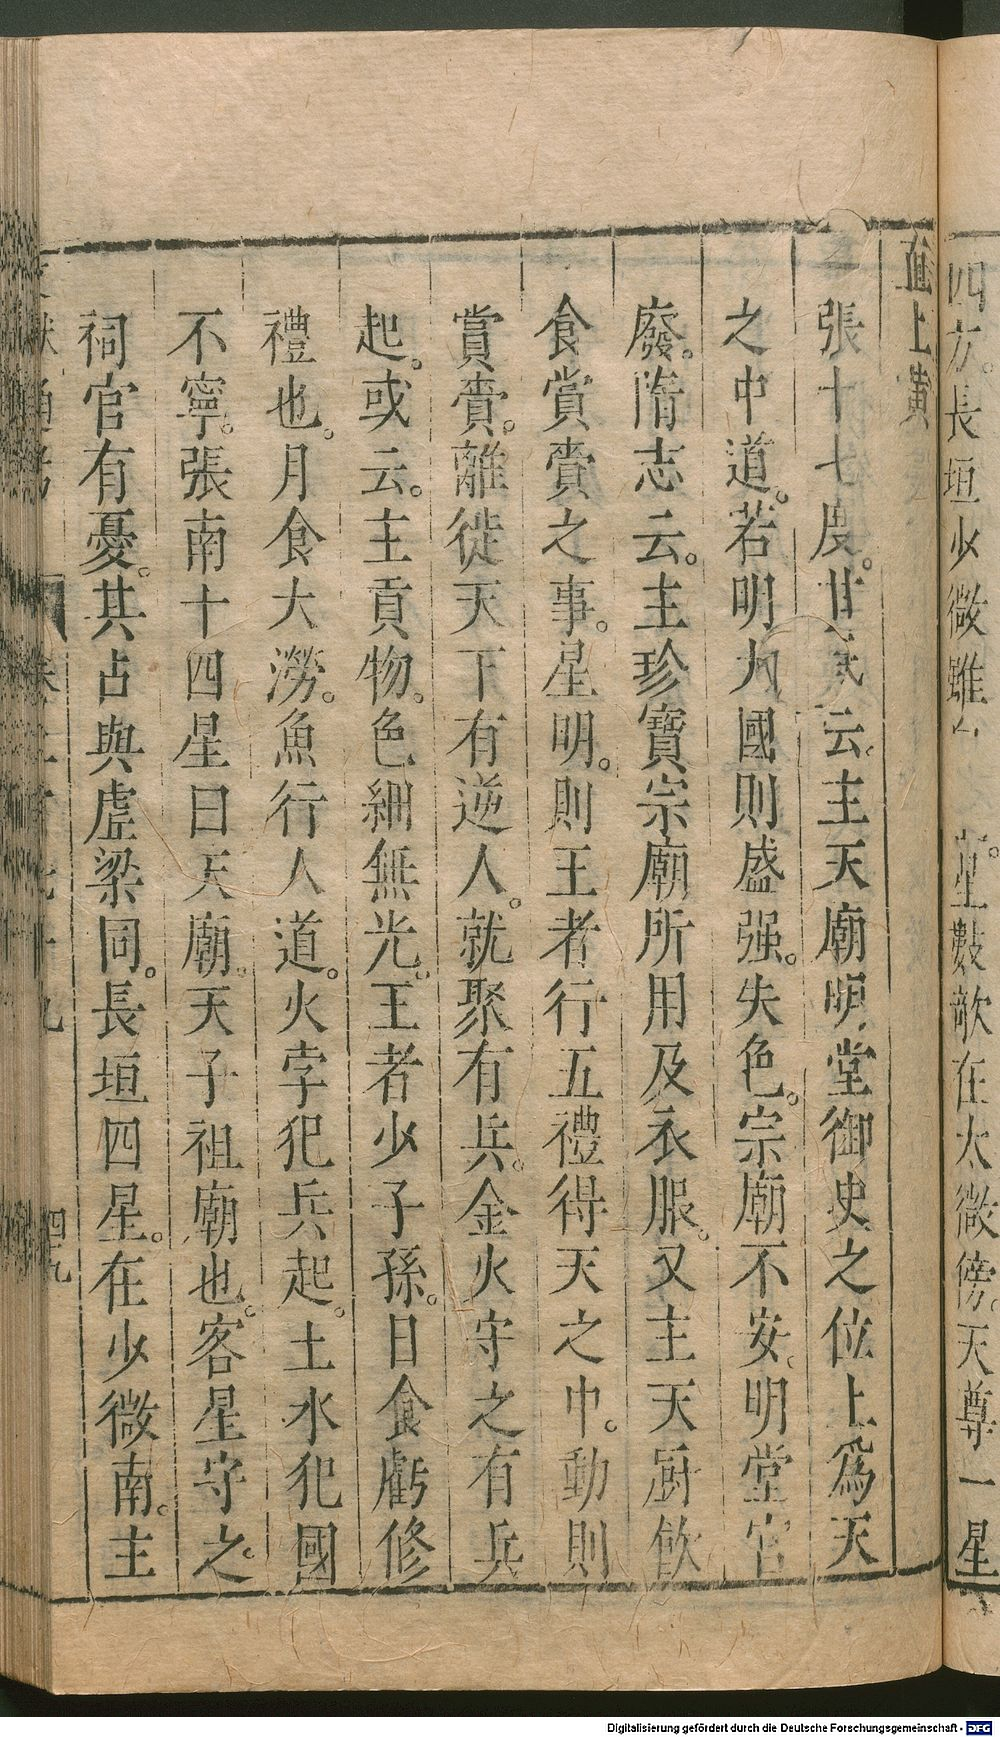 四方。長垣少微雖 星數欹在太微傍。天尊一星
直上黃
張十七度。甘 云。主天廟明堂御史之位上爲天
之中道。若明大國則盛强。失色。宗廟不安。明堂宮
廢。隋志云。主珍寶宗廟所用及衣服。又主天厨飲
食賞賚之事。星明。則王者行五禮得天之中。動則
賞賚。離徙天下有逆人。就聚有兵。金火守之有兵
起。或云。主貢物。色細無光。王者少子孫。日食虧修
禮也。月食大澇。魚行人道。火孛犯兵起。土水犯國
不寧。張南十四星曰天廟。天子祖廟也。客星守之。
祠官有憂。其占與虛梁同。長垣四星。在少微南。主
四九
Digitalisierung gefördert durch die Deutsche Forschungsgemeinschaft - DFG